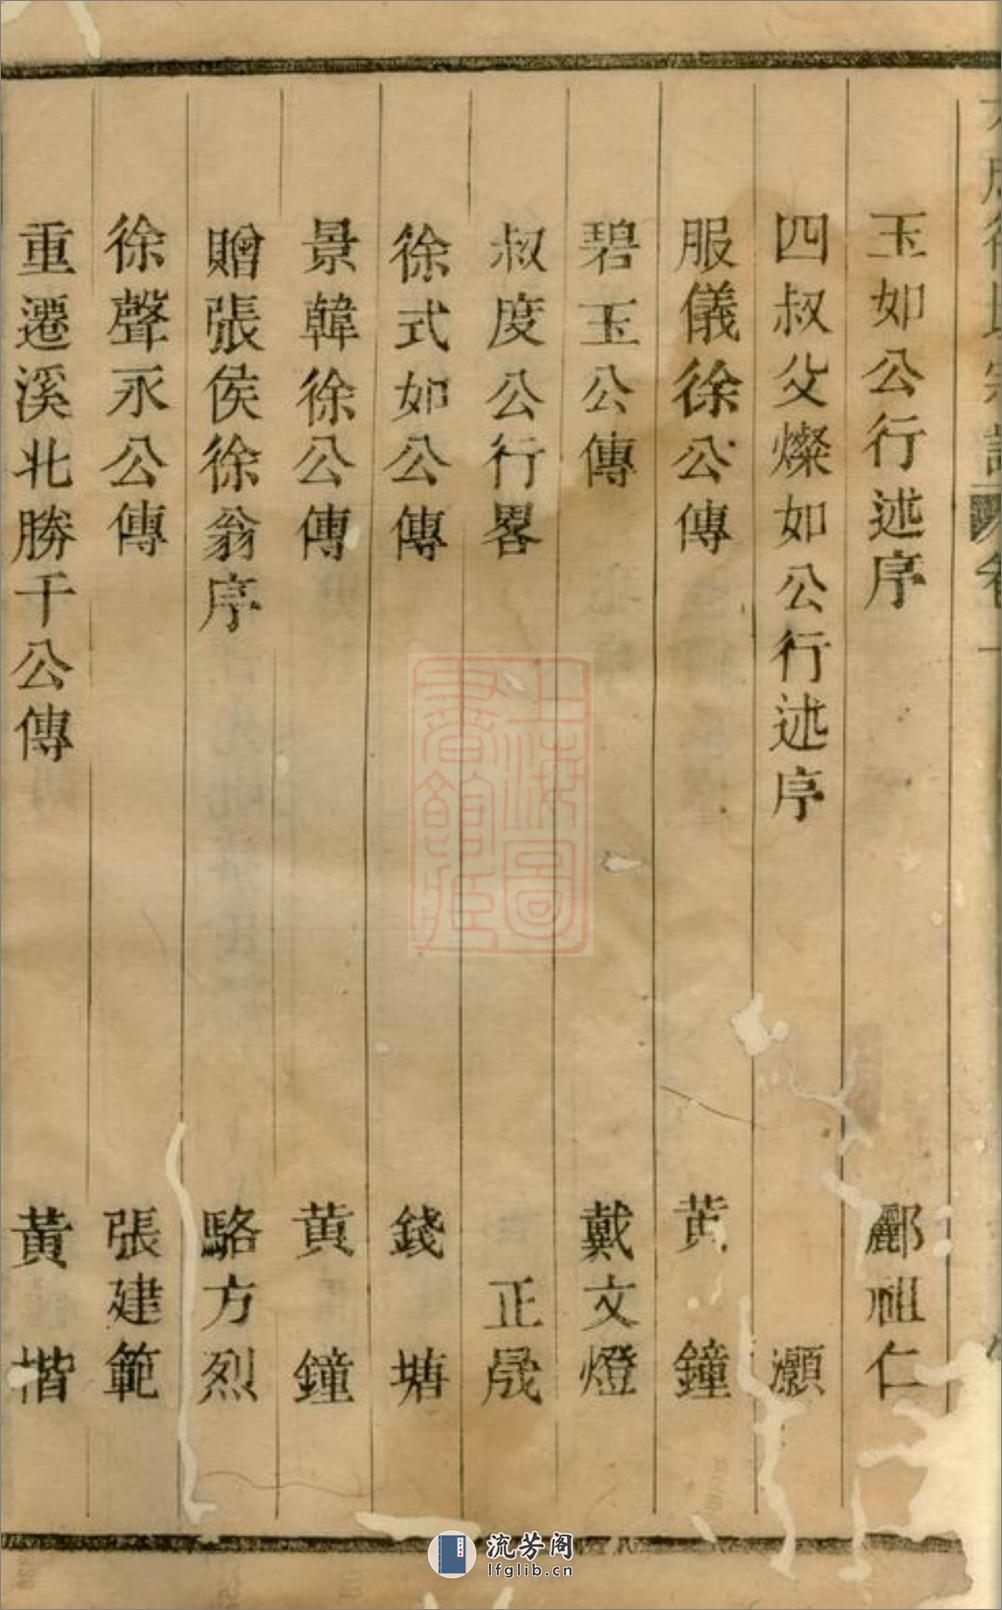 玉如公行述序 酈祖仁
四叔父燦如公行述序 灝
服儀徐公傳 黄鐘
碧玉公傳 戴文燈
叔度公行畧 正晟
徐式如公傳 錢塘
景韓徐公傳 黄鐘
贈張侯徐翁序 駱方烈
徐聲永公傳 張建範
重遷溪北勝千公傳 黃楷
上海圖書館藏
流芳阁
lfglib.cn